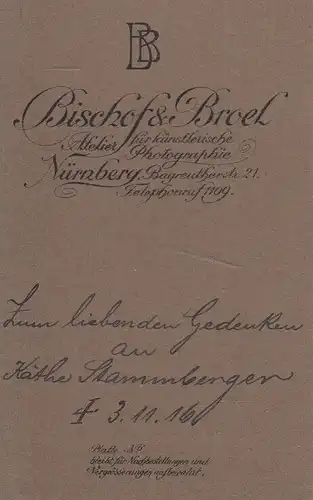 BB
Bischof & Broel
Atelier für künstlerische
Photographie
Nürnberg, Bayreutherstr. 21.
Telephonruf 1109.
Zum liebenden Gedenken
an
Käthe Stammberger
† 3.11.16.
Platte No
bleibt für Nachbestellungen und
Vergrösserungen aufbewahrt.